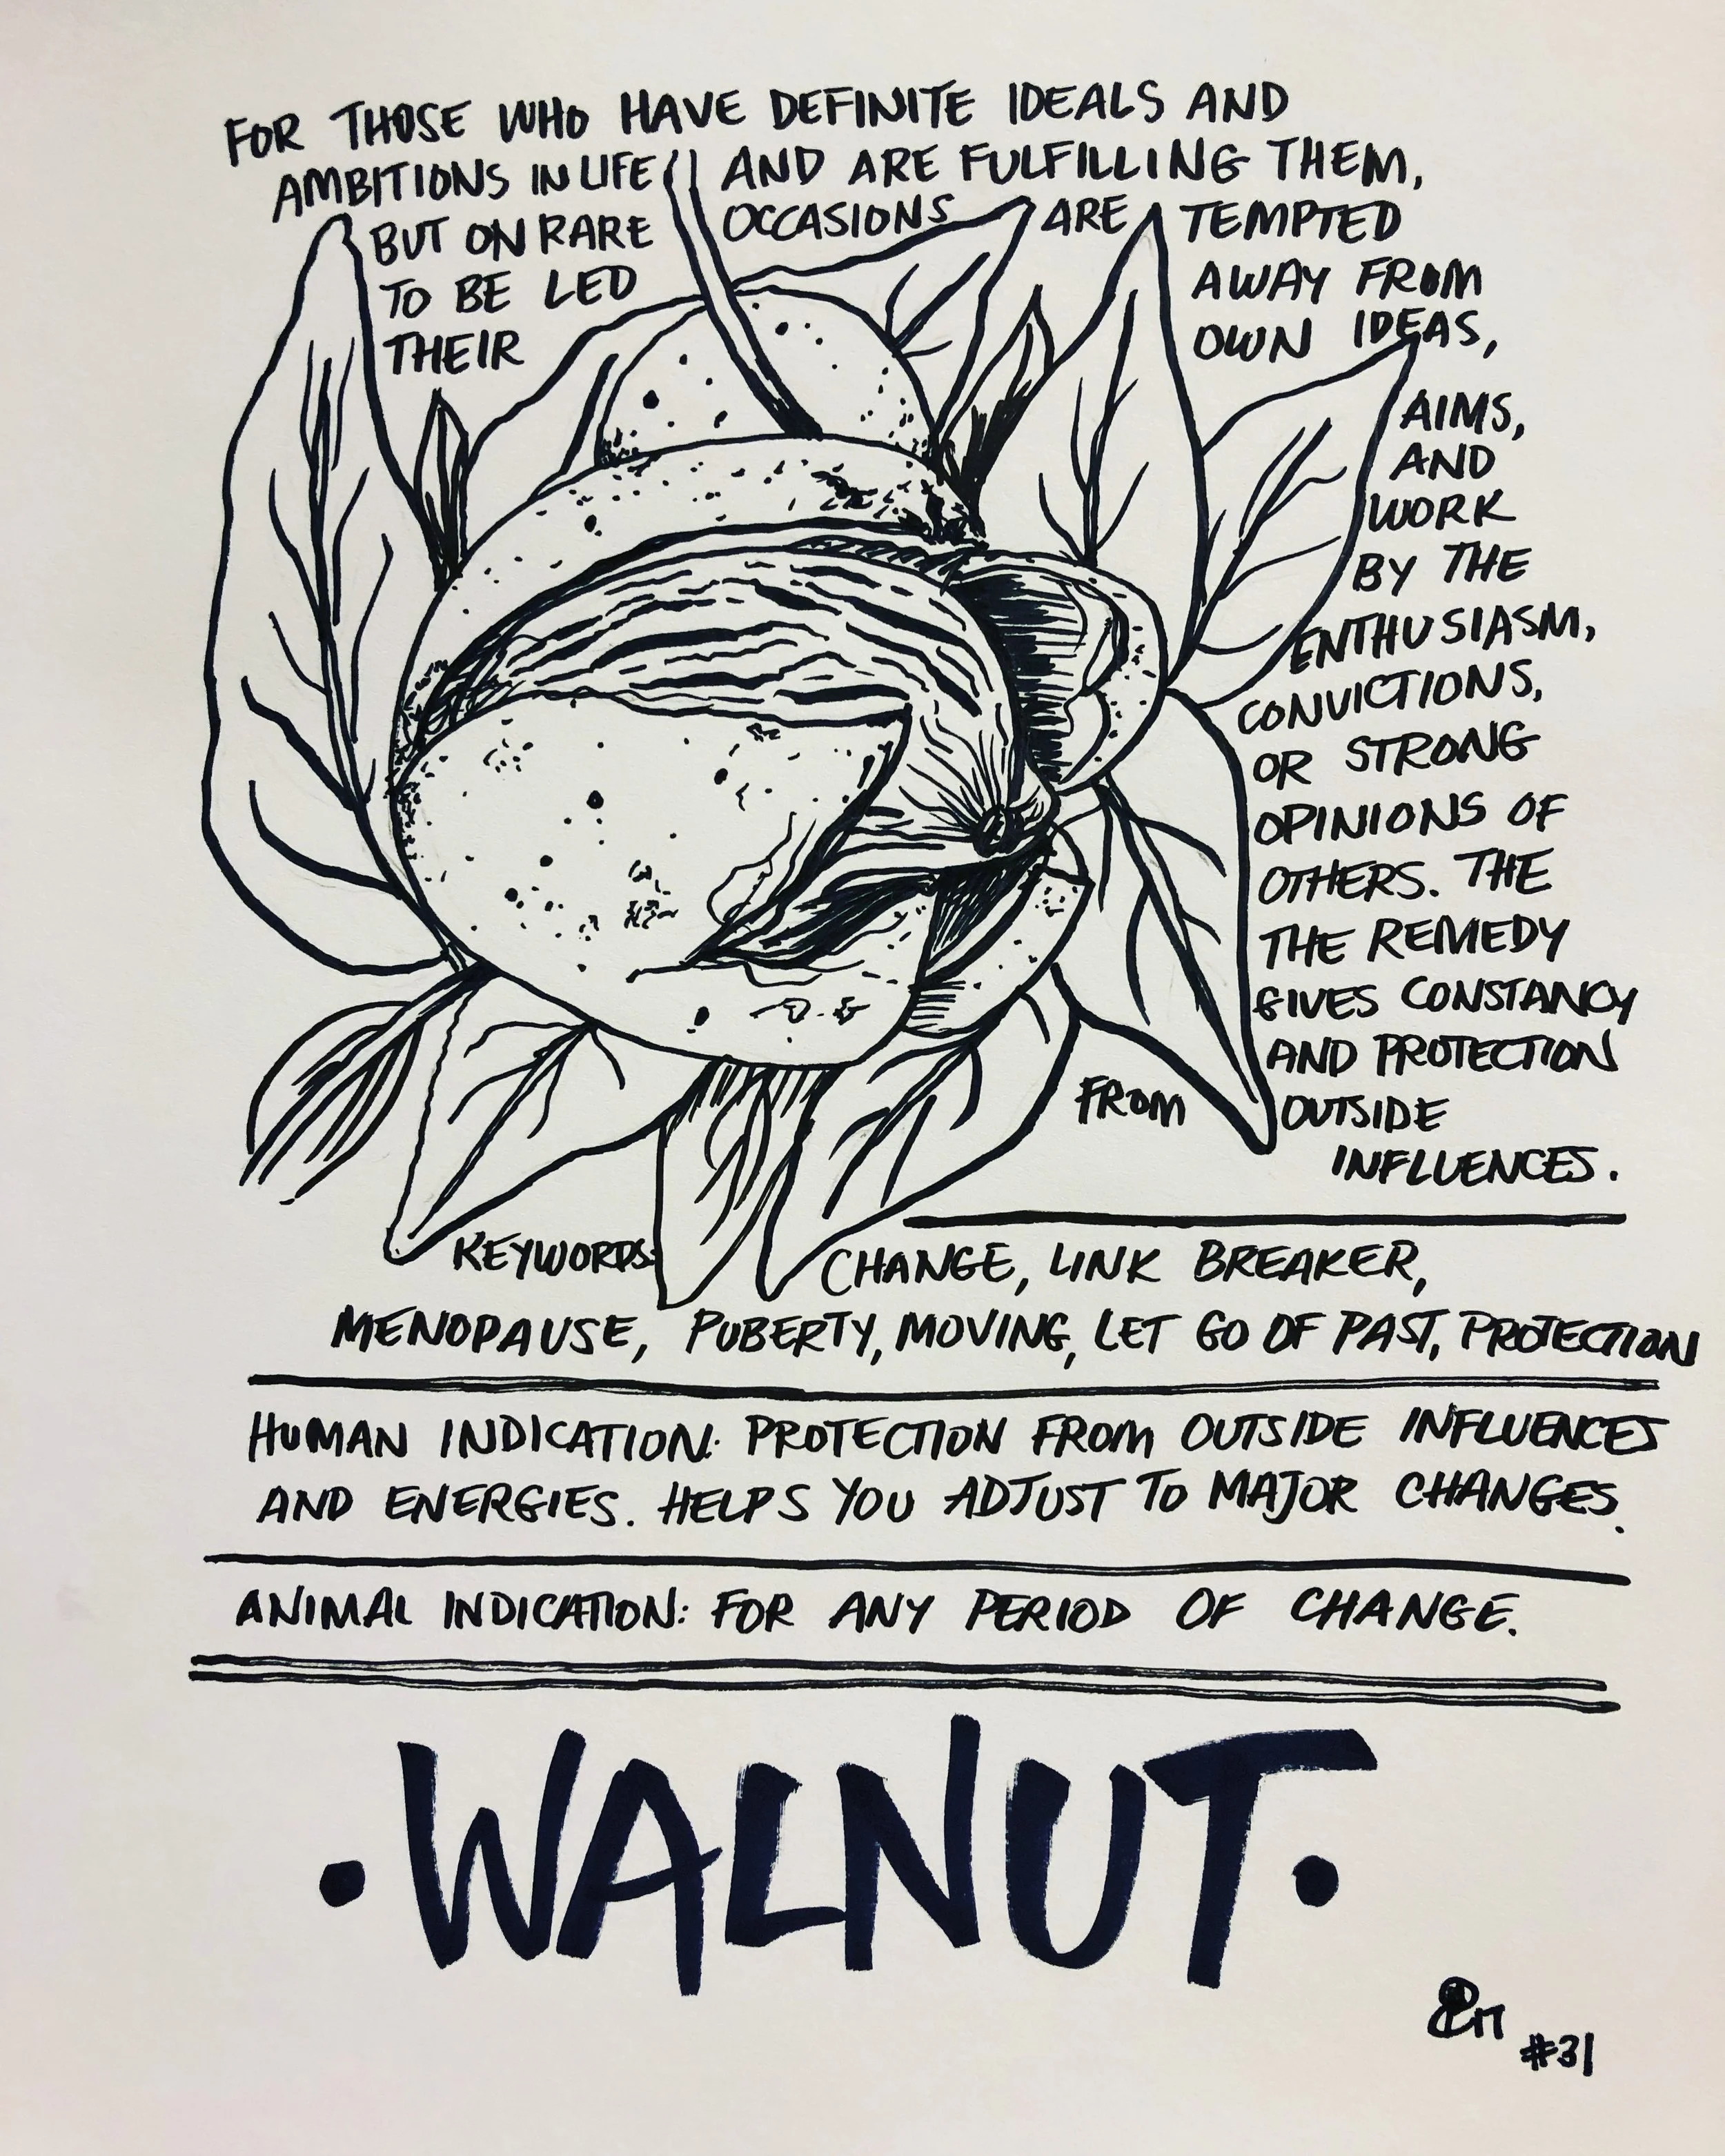 FOR THOSE WHO HAVE DEFINITE IDEALS AND
AMBITIONS IN LIFE AND ARE FULFILLING THEM,
BUT ON RARE OCCASIONS ARE TEMPTED
TO BE LED AWAY FROM
THEIR OWN IDEAS,
AIMS,
AND
WORK
BY THE
ENTHUSIASM,
CONVICTIONS,
OR STRONG
OPINIONS OF
OTHERS. THE
THE REMEDY
GIVES CONSTANCY
AND PROTECTION
FROM OUTSIDE
INFLUENCES.
KEYWORDS: CHANGE, LINK BREAKER,
MENOPAUSE, PUBERTY, MOVING, LET GO OF PAST, PROTECTION
HUMAN INDICATION: PROTECTION FROM OUTSIDE INFLUENCES
AND ENERGIES. HELPS YOU ADJUST TO MAJOR CHANGES.
ANIMAL INDICATION: FOR ANY PERIOD OF CHANGE.
•WALNUT•
#31